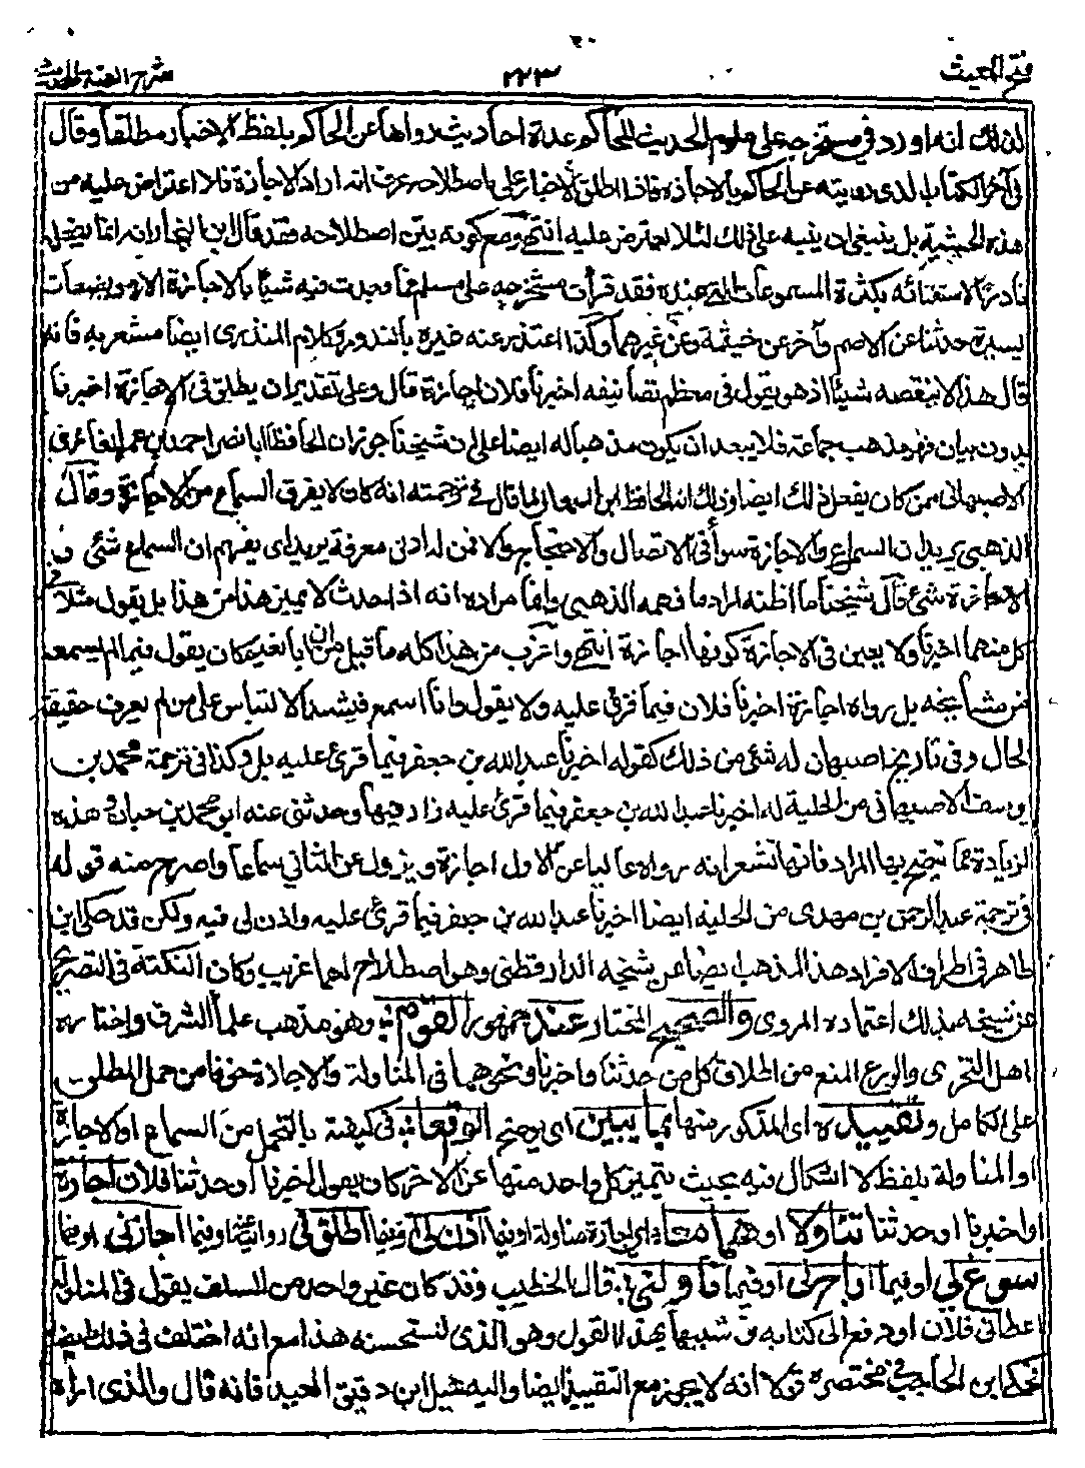 فتح المغيث
٢٢٣
شرح الفية الحديث
لذلك انه اورد في مستخرجه على علوم الحديث للحاكم عدة احاديث رواها عن الحاكم بلفظ الاخبار مطلقا وقال
في آخر الكتاب الذى رويته عن الحاكم بالاجازة فاذا اطلق الاخبار على اصطلاحه عرف انه اراد الاجازة فلا اعتراض عليه من
هذه الحيثية بل ينبغى ان ينبه على ذلك لئلا يعترض عليه انتهى ومع كونه بين اصطلاحه فقد قال ابن النجار انه انما يفعل
نادرا لاستغنائه بكثرة المسموعات التى عنده فقد قرأت مستخرجه على مسلم فما وجدت فيه شيئا بالاجازة الا مويضعات
يسيرة حدثنا عن الاصم وآخر عن خيثمة وعن غيرهما وكذا اعتذر عنه غيره بالندور وكلام المنذرى ايضا مشعر به فانه
قال هذا لا ينقصه شيئا اذ هو يقول في معظم تصانيفه اخبرنا فلان اجازة قال وعلى تقدير ان يطلق في الاجازة اخبرنا
بدون بيان فهو مذهب جماعة فلا يبعد ان يكون مذهبا له ايضا على ان شيخنا جوز ان الحافظ ابا نصر احمد بن عمر الغازى
الاصبهانى ممن كان يفعل ذلك ايضا وذلك ان الحافظ ابن السمعانى لما قال في ترجمته انه كان لا يفرق السماع من الاجازة وقال
الذهبى يريد ان السماع والاجازة سواء في الاتصال والاحتجاج والا فمن له ادنى معرفة يريد اى يفهم ان السماع شئ و
الاجازة شئ قال شيخنا ما اظنه اراد ما فهمه الذهبى وانما مراده انه اذا حدث لا يميز هذا من هذا بل يقول مثلا في
كل منهما اخبرنا ولا يعين في الاجازة كونها اجازة انتهى واغرب من هذا كله ما قيل من ان ابا نعيم كان يقول فيما لم يسمعه
من مشايخه بل رواه اجازة اخبرنا فلان فيما قرئ عليه ولا يقول وانا اسمع فيشتد الالتباس على من لم يعرف حقيقة
الحال وفى تاريخ اصبهان له شئ من ذلك كقوله اخبرنا عبد الله بن جعفر فيما قرئ عليه بل وكذا في ترجمة محمد بن
يوسف الاصبهانى من الحلية له اخبرنا عبد الله بن جعفر فيما قرئ عليه زاد فيها وحدثنى عنه ابو محمد بن حبان وهذه
الزيادة مما يتضح بها المراد فانها تشعر انه رواه عاليا عن الاول اجازة وبنزول عن الثانى سماعا واصرح منه قوله
في ترجمة عبد الرحمن بن مهدى من الحلية ايضا اخبرنا عبد الله بن جعفر فيما قرئ عليه واذن لى فيه ولكن قد حكى ابن
طاهر في اطراف الافراد هذا المذهب ايضا عن شيخه الدارقطنى وهو اصطلاح لهما غريب وكان النكتة في التصريح
عن شيخه بذلك اعتماده المروى والصحيح المختار عند جمهور القوم وهو مذهب علماء الشرق واختاره
اهل التحرى والورع المنع من اطلاق كل من حدثنا واخبرنا ونحوهما في المناولة والاجازة خوفا من حمل المطلق
على الكامل وتقييده اى المذكور منهما بما يبين اى يوضح الواقعة في كيفية بالتحمل من السماع او الاجازة
او المناولة بلفظ لا اشكال فيه بحيث يتميز كل واحد منها عن الاخر كان يقول اخبرنا او حدثنا فلان اجازة
او اخبرنا او حدثنا تناولا او هما معا اى اجازة مناولة او فيما اذن لى او فيما اطلق لى روايته او فيما اجازنى او فيما
سوغ لى او فيما اباح لى او فيما ناولنى قال الخطيب وقد كان غير واحد من السلف يقول في المناولة
اعطانى فلان او دفع الى كتابه وشبيها بهذا القول وهو الذى نستحسنه هذا مع انه اختلف في ذلك ايضا
فحكى ابن الحاجب في مختصره قولا انه لا يجوز مع التقييد ايضا واليه يميل ابن دقيق العيد فانه قال والذى اراه